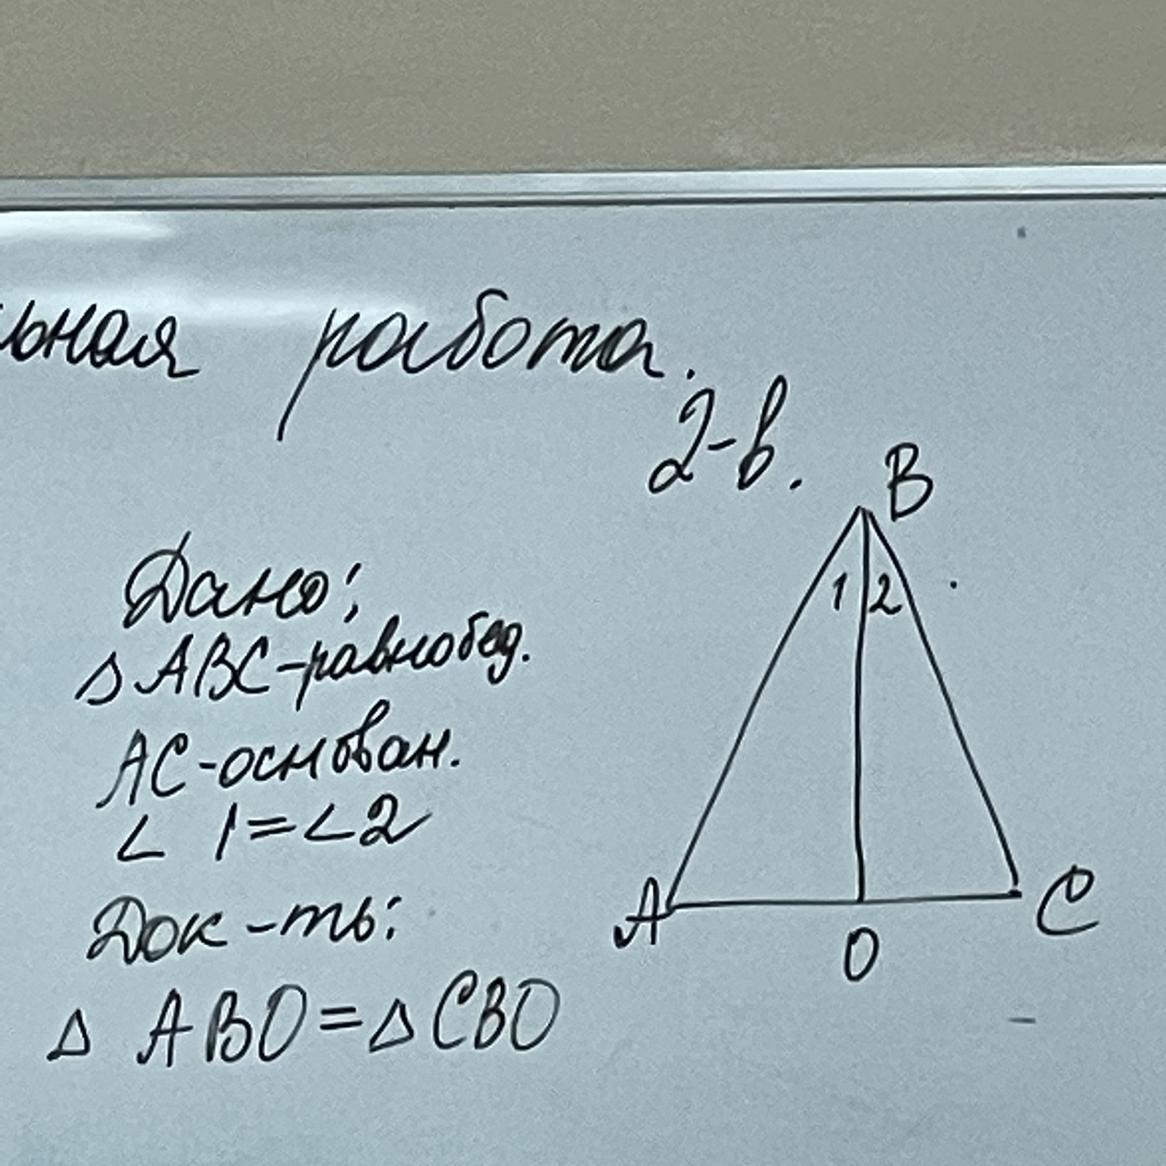 ьная работа.
2-в.
Дано:
△ ABC-равнобед.
AC-основан.
∠ 1=∠2
Док-ть:
△ ABO=△ CBO
B
1 2
A
O
C